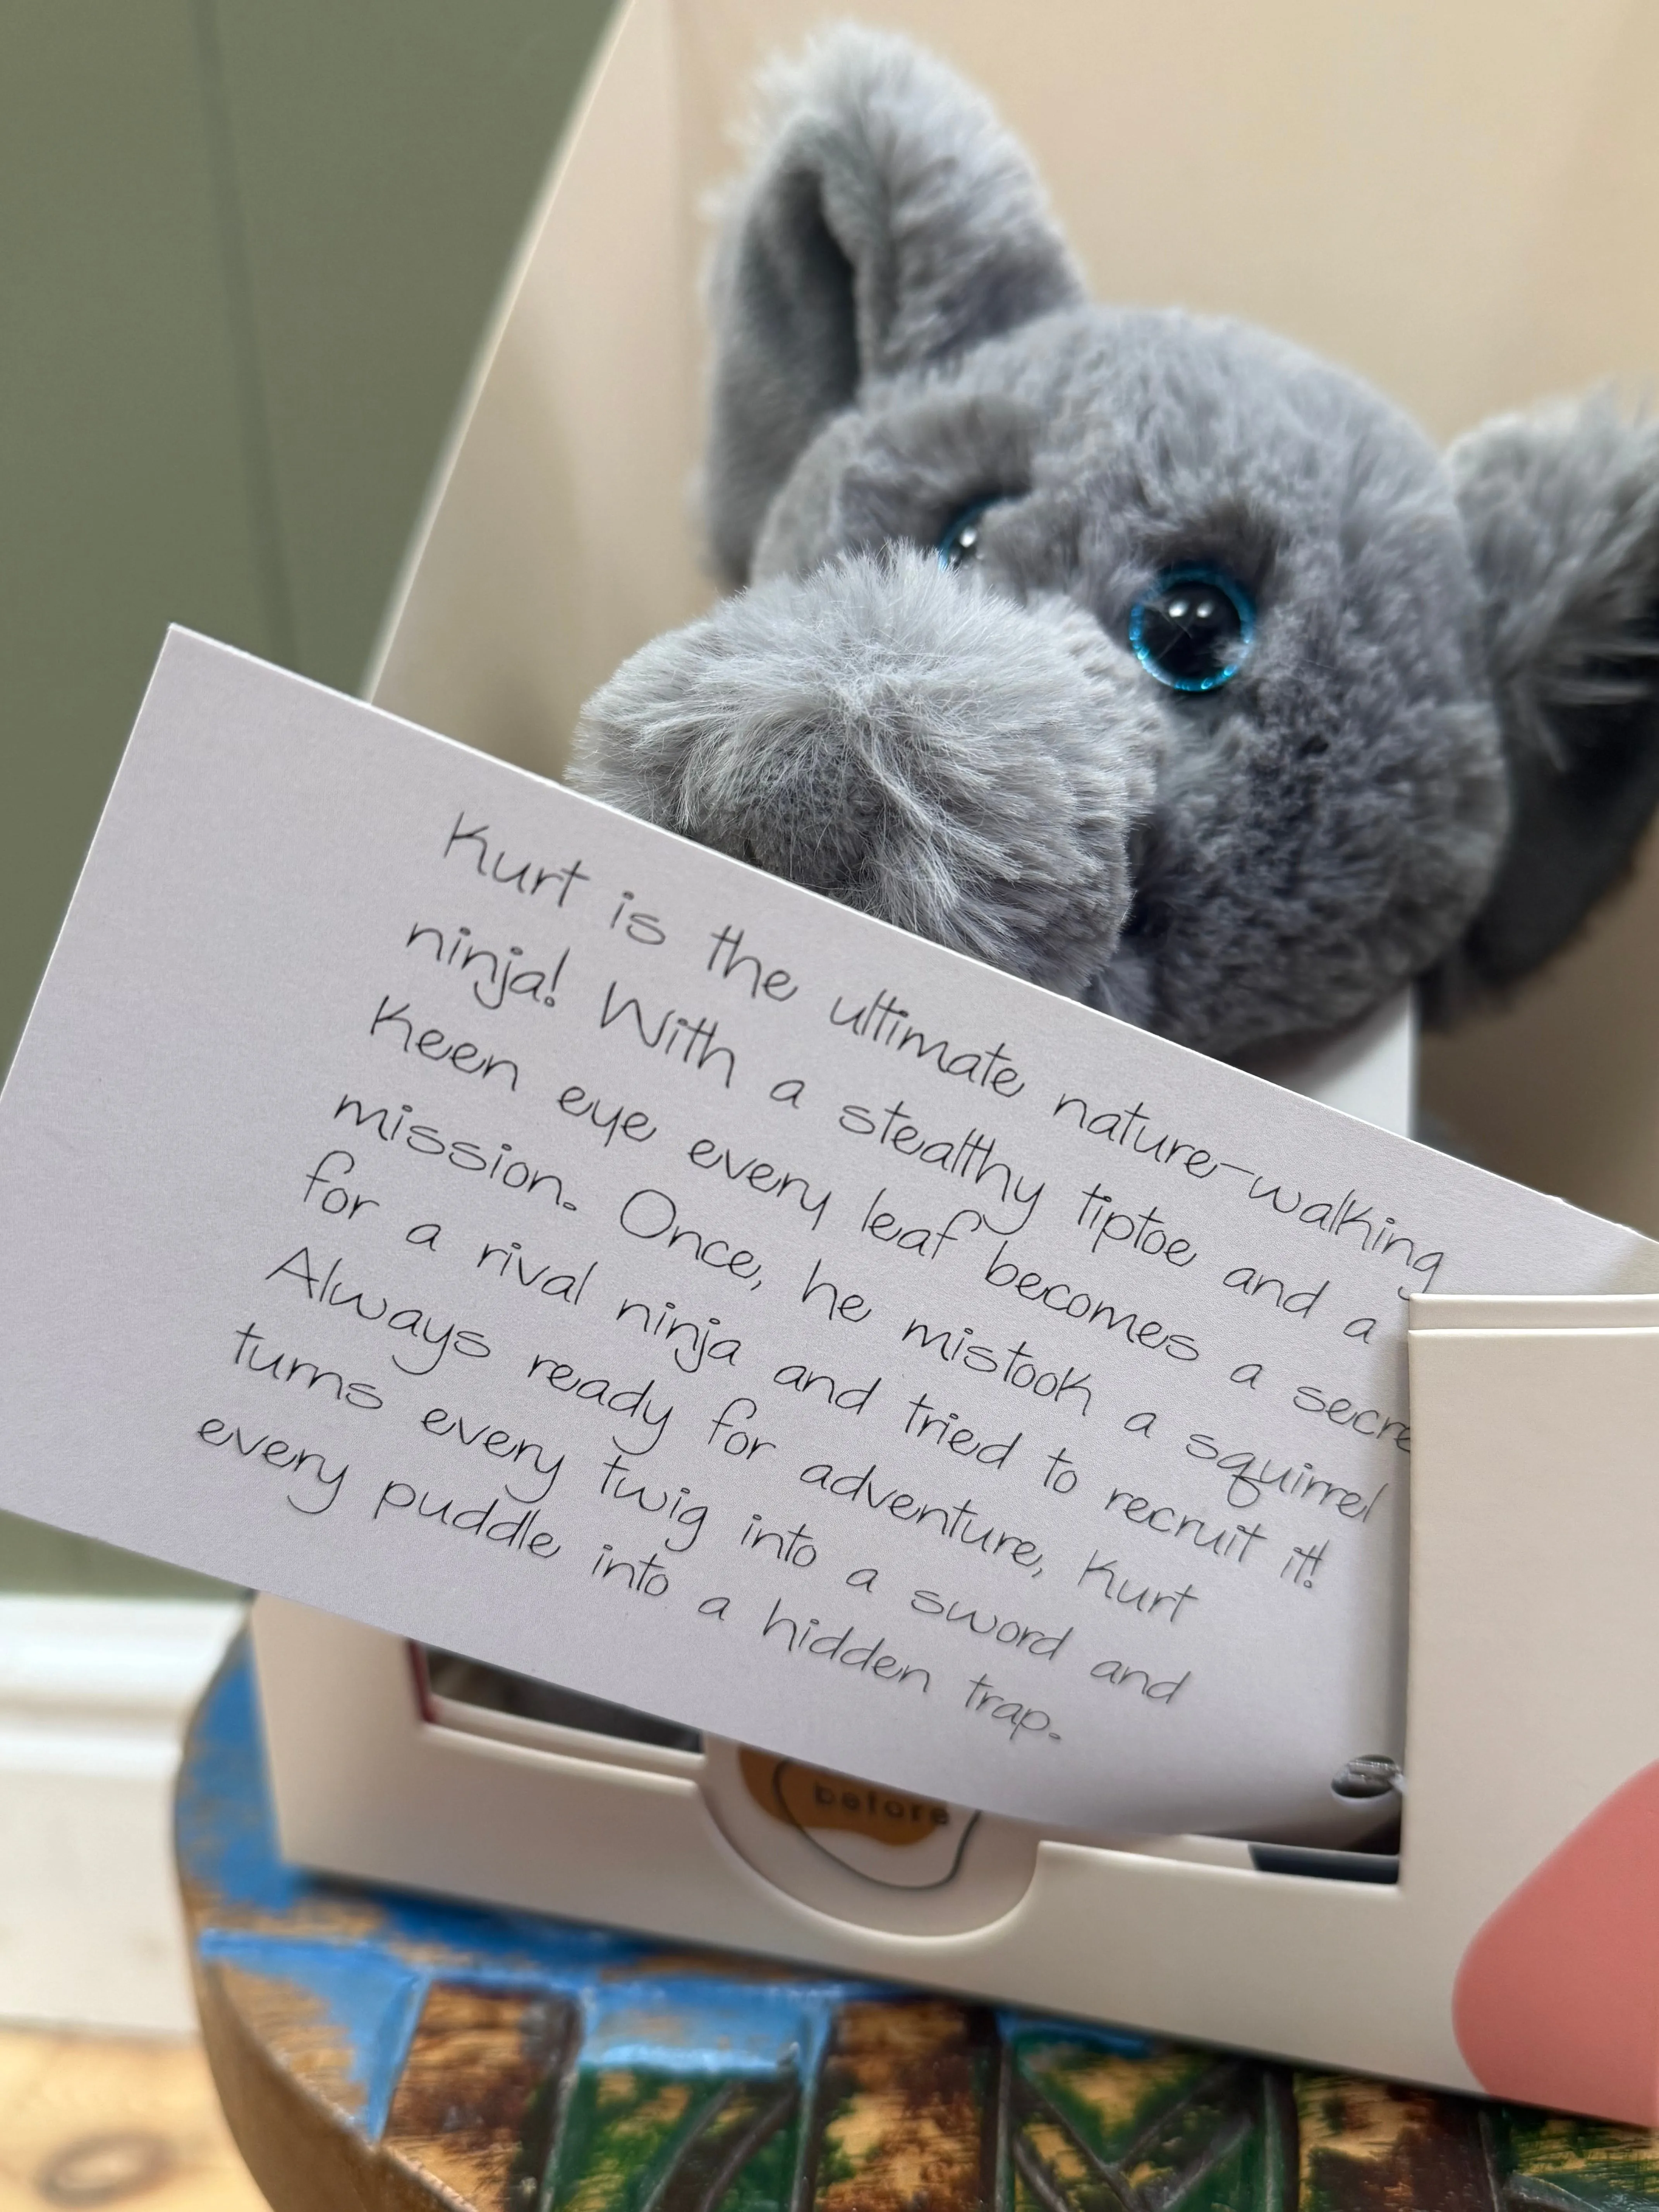 Kurt is the ultimate nature-walking
ninja! With a stealthy tiptoe and a
keen eye every leaf becomes a secre
mission. Once, he mistook a squirrel
for a rival ninja and tried to recruit it!
Always ready for adventure, Kurt
turns every twig into a sword and
every puddle into a hidden trap.
before